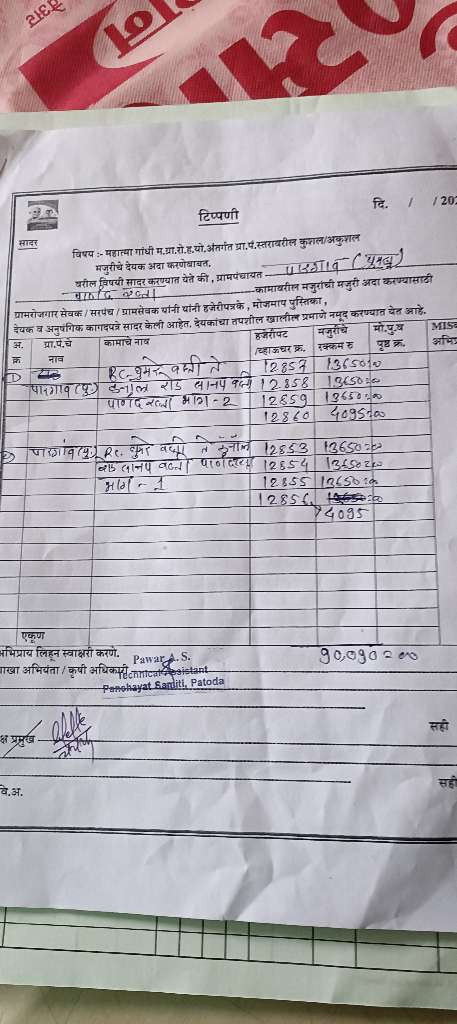 टिप्पणी
दि. / / 202
सादर
विषय :- महात्मा गांधी म.ग्रा.रो.ह.यो.अंतर्गत ग्रा.पं.स्तरावरील कुशल/अकुशल
मजुरीचे देयक अदा करणेबाबत.
वरील विषयी सादर करण्यात येते की, ग्रामपंचायत पारगाव (घुमरा)
कामावरील मजुरांची मजुरी अदा करण्यासाठी
ग्रामरोजगार सेवक / सरपंच / ग्रामसेवक यांनी यांनी हजेरीपत्रके, मोजमाप पुस्तिका,
देयक व अनुषंगिक कागदपत्रे सादर केली आहेत. देयकांचा तपशील खालील प्रमाणे नमूद करण्यात येत आहे.
अ. क्र ग्रा.पं.चे नाव कामाचे नाव हजेरीपट /व्हाऊचर क्र. मजुरीचे रक्कम रु मो.पु.व पृष्ठ क्र. MIS अभिप्र
1) Rc. वस्ती ते 12857 13650=00
पारगाव (घु) रोड वस्ती 12858 13650=00
पाणंद रस्ता भाग - 2 12859 13650=00
12860 4095=00
2) पारगांव (घु) Rc. वस्ती ते 12853 13650=00
रोड वस्ती पाणंद रस्ता 12854 13650=00
भाग - 1 12855 13650=00
12856 4095
एकूण
अभिप्राय लिहून स्वाक्षरी करणे. 90,090=00
शाखा अभियंता / कृषी अधिकारी
Pawar A. S.
Technical Assistant
Panchayat Samiti, Patoda
क्ष प्रमुख
सही
सही
वि.अ.